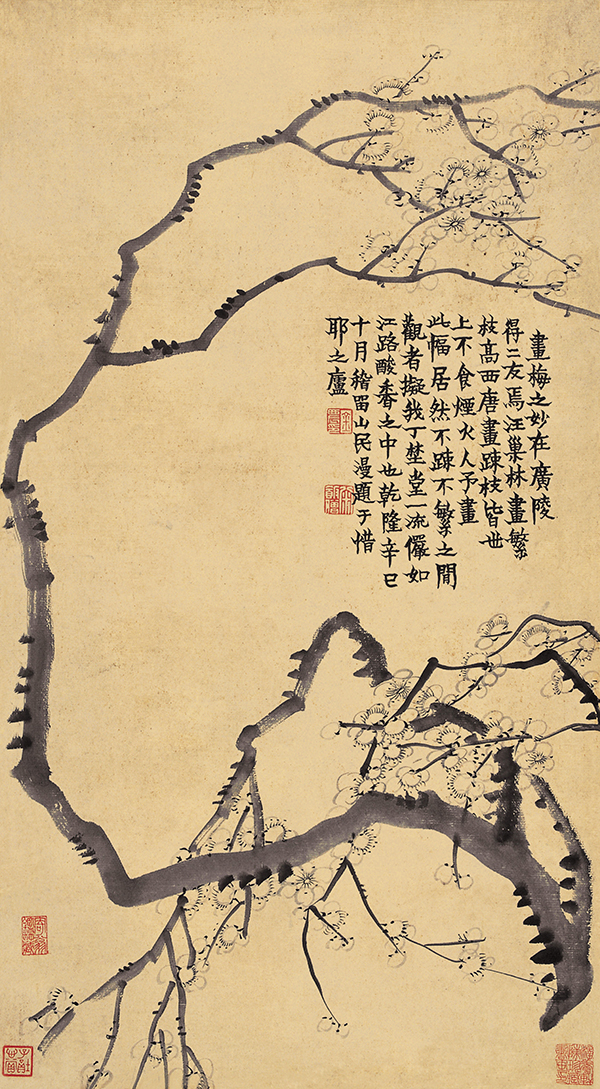 畫梅之妙在廣陵
得二友焉汪巢林畫繁
枝髙西唐畫踈枝皆世
上不食煙火人予畫
此幅居然不踈不繁之間
觀者擬我丁埜堂一流儼如
江路酸香之中也乾隆辛巳
十月稽畱山民漫題于惜
耶之廬